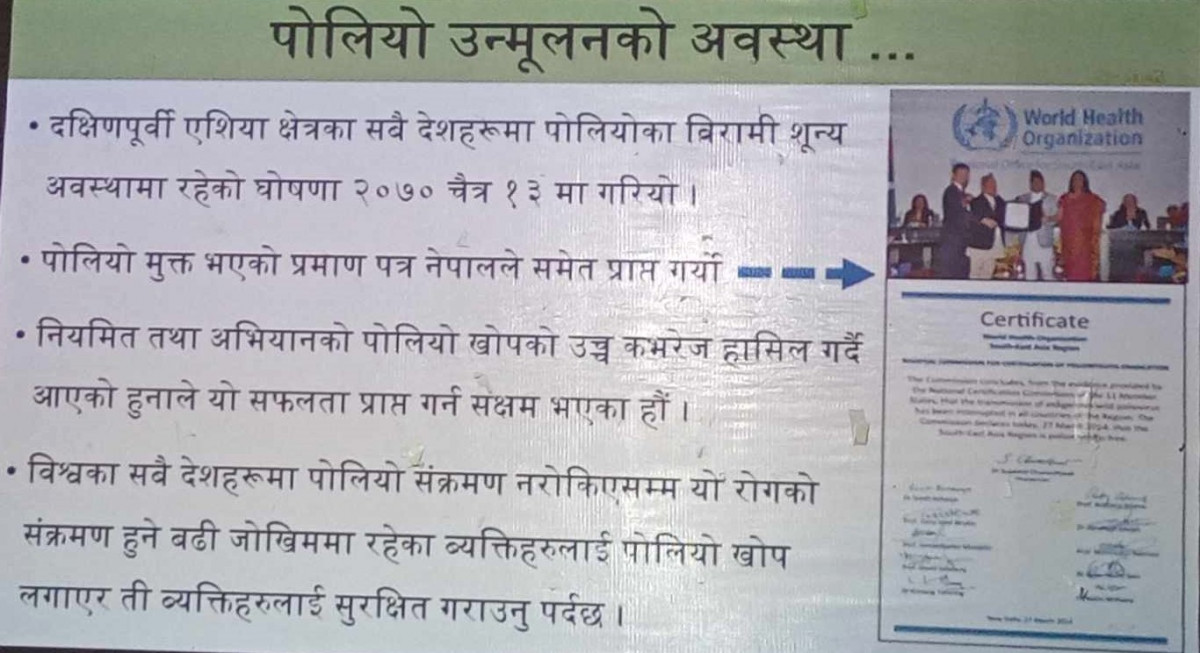 पोलियो उन्मूलनको अवस्था ...
• दक्षिणपूर्वी एशिया क्षेत्रका सवै देशहरूमा पोलियोका विरामी शून्य
अवस्थामा रहेको घोषणा २०७० चैत्र १३ मा गरियो ।
• पोलियो मुक्त भएको प्रमाण पत्र नेपालले समेत प्राप्त गर्यो
• नियमित तथा अभियानको पोलियो खोपको उच्च कभरेज हासिल गर्दै
आएको हुनाले यो सफलता प्राप्त गर्न सक्षम भएका हौं ।
• विश्वका सवै देशहरूमा पोलियो संक्रमण नरोकिएसम्म यो रोगको
संक्रमण हुने वढी जोखिममा रहेका व्यक्तिहरुलाई पोलियो खोप
लगाएर ती व्यक्तिहरुलाई सुरक्षित गराउनु पर्दछ ।
World Health
Organization
Certificate
World Health Organization
South-East Asia Region
The Commission concludes, from the evidence provided by
the National Certification Committees of the 11 Member
States, that the transmission of wild poliovirus
has been interrupted in all countries of the Region. The
Commission declares today, 27 March 2014, that the
South-East Asia Region is free.
New Delhi, 27 March 2014